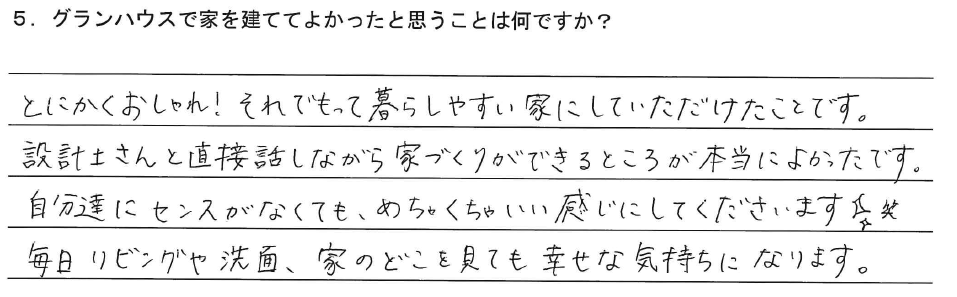 5. グランハウスで家を建ててよかったと思うことは何ですか？
とにかくおしゃれ！それでもって暮らしやすい家にしていただけたことです。
設計士さんと直接話しながら家づくりができるところが本当によかったです。
自分達にセンスがなくても、めちゃくちゃいい感じにしてくださいます笑
毎日リビングや洗面、家のどこを見ても幸せな気持ちになります。